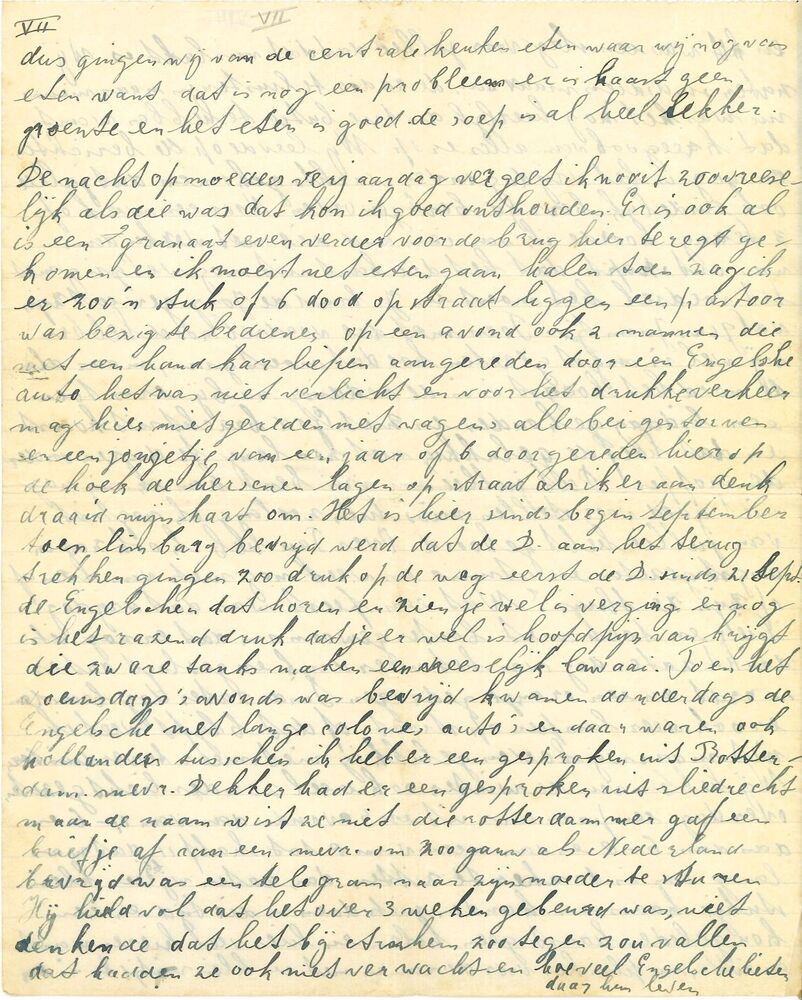 VII
dus gingen wij van de centrale keuken eten waar wij nog van
eten want dat is nog een probleem er is haast geen
groente en het eten is goed de soep is al heel lekker.
De nacht op moeders verjaardag vergeet ik nooit zoo vreese-
lijk als die was dat kon ik goed onthouden. Er is ook al
is een granaat even verder voor de brug hier teregt ge-
komen en ik moest net eten gaan halen toen zag ik
er zoo'n stuk of 6 dood op straat liggen een pastoor
was bezig te bedienen op een avond ook 2 mannen die
met een hand kar liepen aangereden door een Engelshe
auto het was niet verlicht en voor het drukke verkeer
mag hier niet gereden met wagens alle bei gestorven
en een jongetje van een jaar of 6 doorgereden hier op
de hoek de hersenen lagen op straat als ik er aan denk
draaid mijn hart om. Het is hier sinds begin September
toen limburg bevrijd werd dat de D. aan het terug
trekken gingen zoo druk op de weg eerst de D. sinds 21 Sept.
de Engelschen dat horen en zien je wel is verging en nog
is het razend druk dat je er wel is hoofdpijn van krijgt
die zware tanks maken een vreeselijk lawaai. Toen het
woensdags 's avonds was bevrijd kwamen donderdags de
Engelsche met lange colones auto's en daar waren ook
hollanders tusschen ik heb er een gesproken uit Rotter-
dam. mevr. Dekker had er een gesproken uit sliedrecht
maar de naam wist ze niet die rotterdammer gaf een
briefje af aan een mevr. om zoo gauw als Nederland
bevrijd was een telegram naar zijn moeder te sturen
Hij hield vol dat het over 3 weken gebeurd was, niet
denkende dat het bij Arnhem zoo tegen zou vallen
dat hadden ze ook niet verwacht en hoeveel Engelsche lieten
daar hun leven